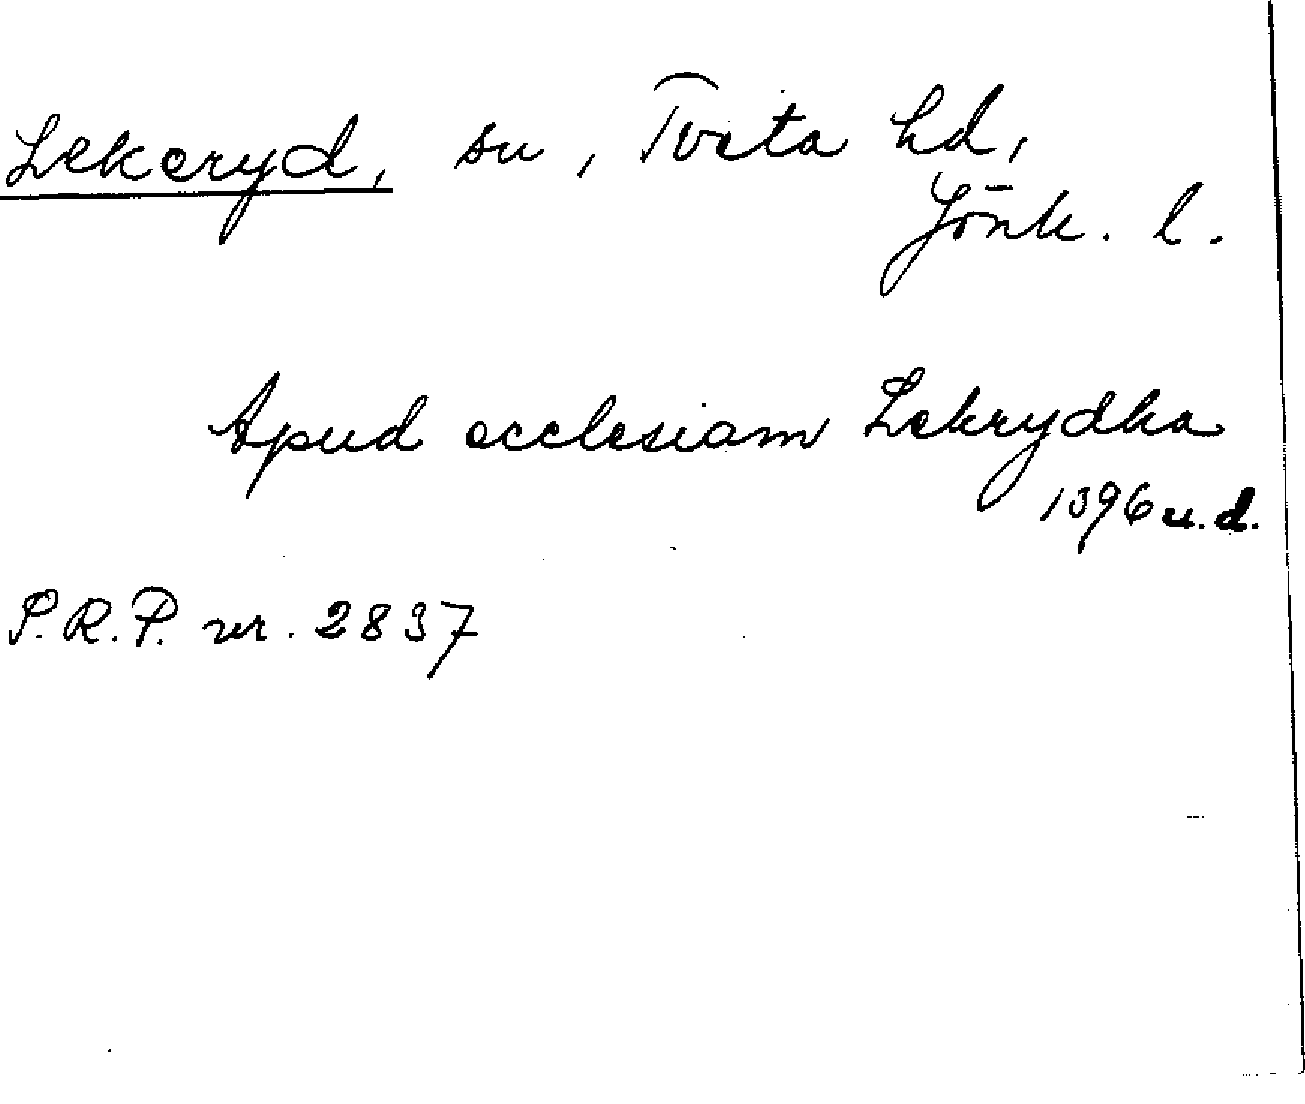 Lekeryd, sn, Tveta hd,
Jönk. l.
Apud ecclesiam Lekrydha
1396 u. d.
S.R.P. nr. 2837